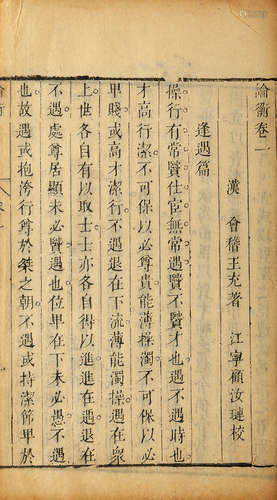 論衡卷一
漢 會稽王充著 江寧顧汝璉校
逢遇篇
操行有常賢仕宦無常遇賢不賢才也遇不遇時也
才高行潔不可保以必尊貴能薄操濁不可保以必
卑賤或高才潔行不遇退在下流薄能濁操遇在衆
上世各自有以取士士亦各自得以進進在遇退在
不遇處尊居顯未必賢遇也位卑在下未必愚不遇
也故遇或抱洿行尊於桀之朝不遇或持潔節卑於